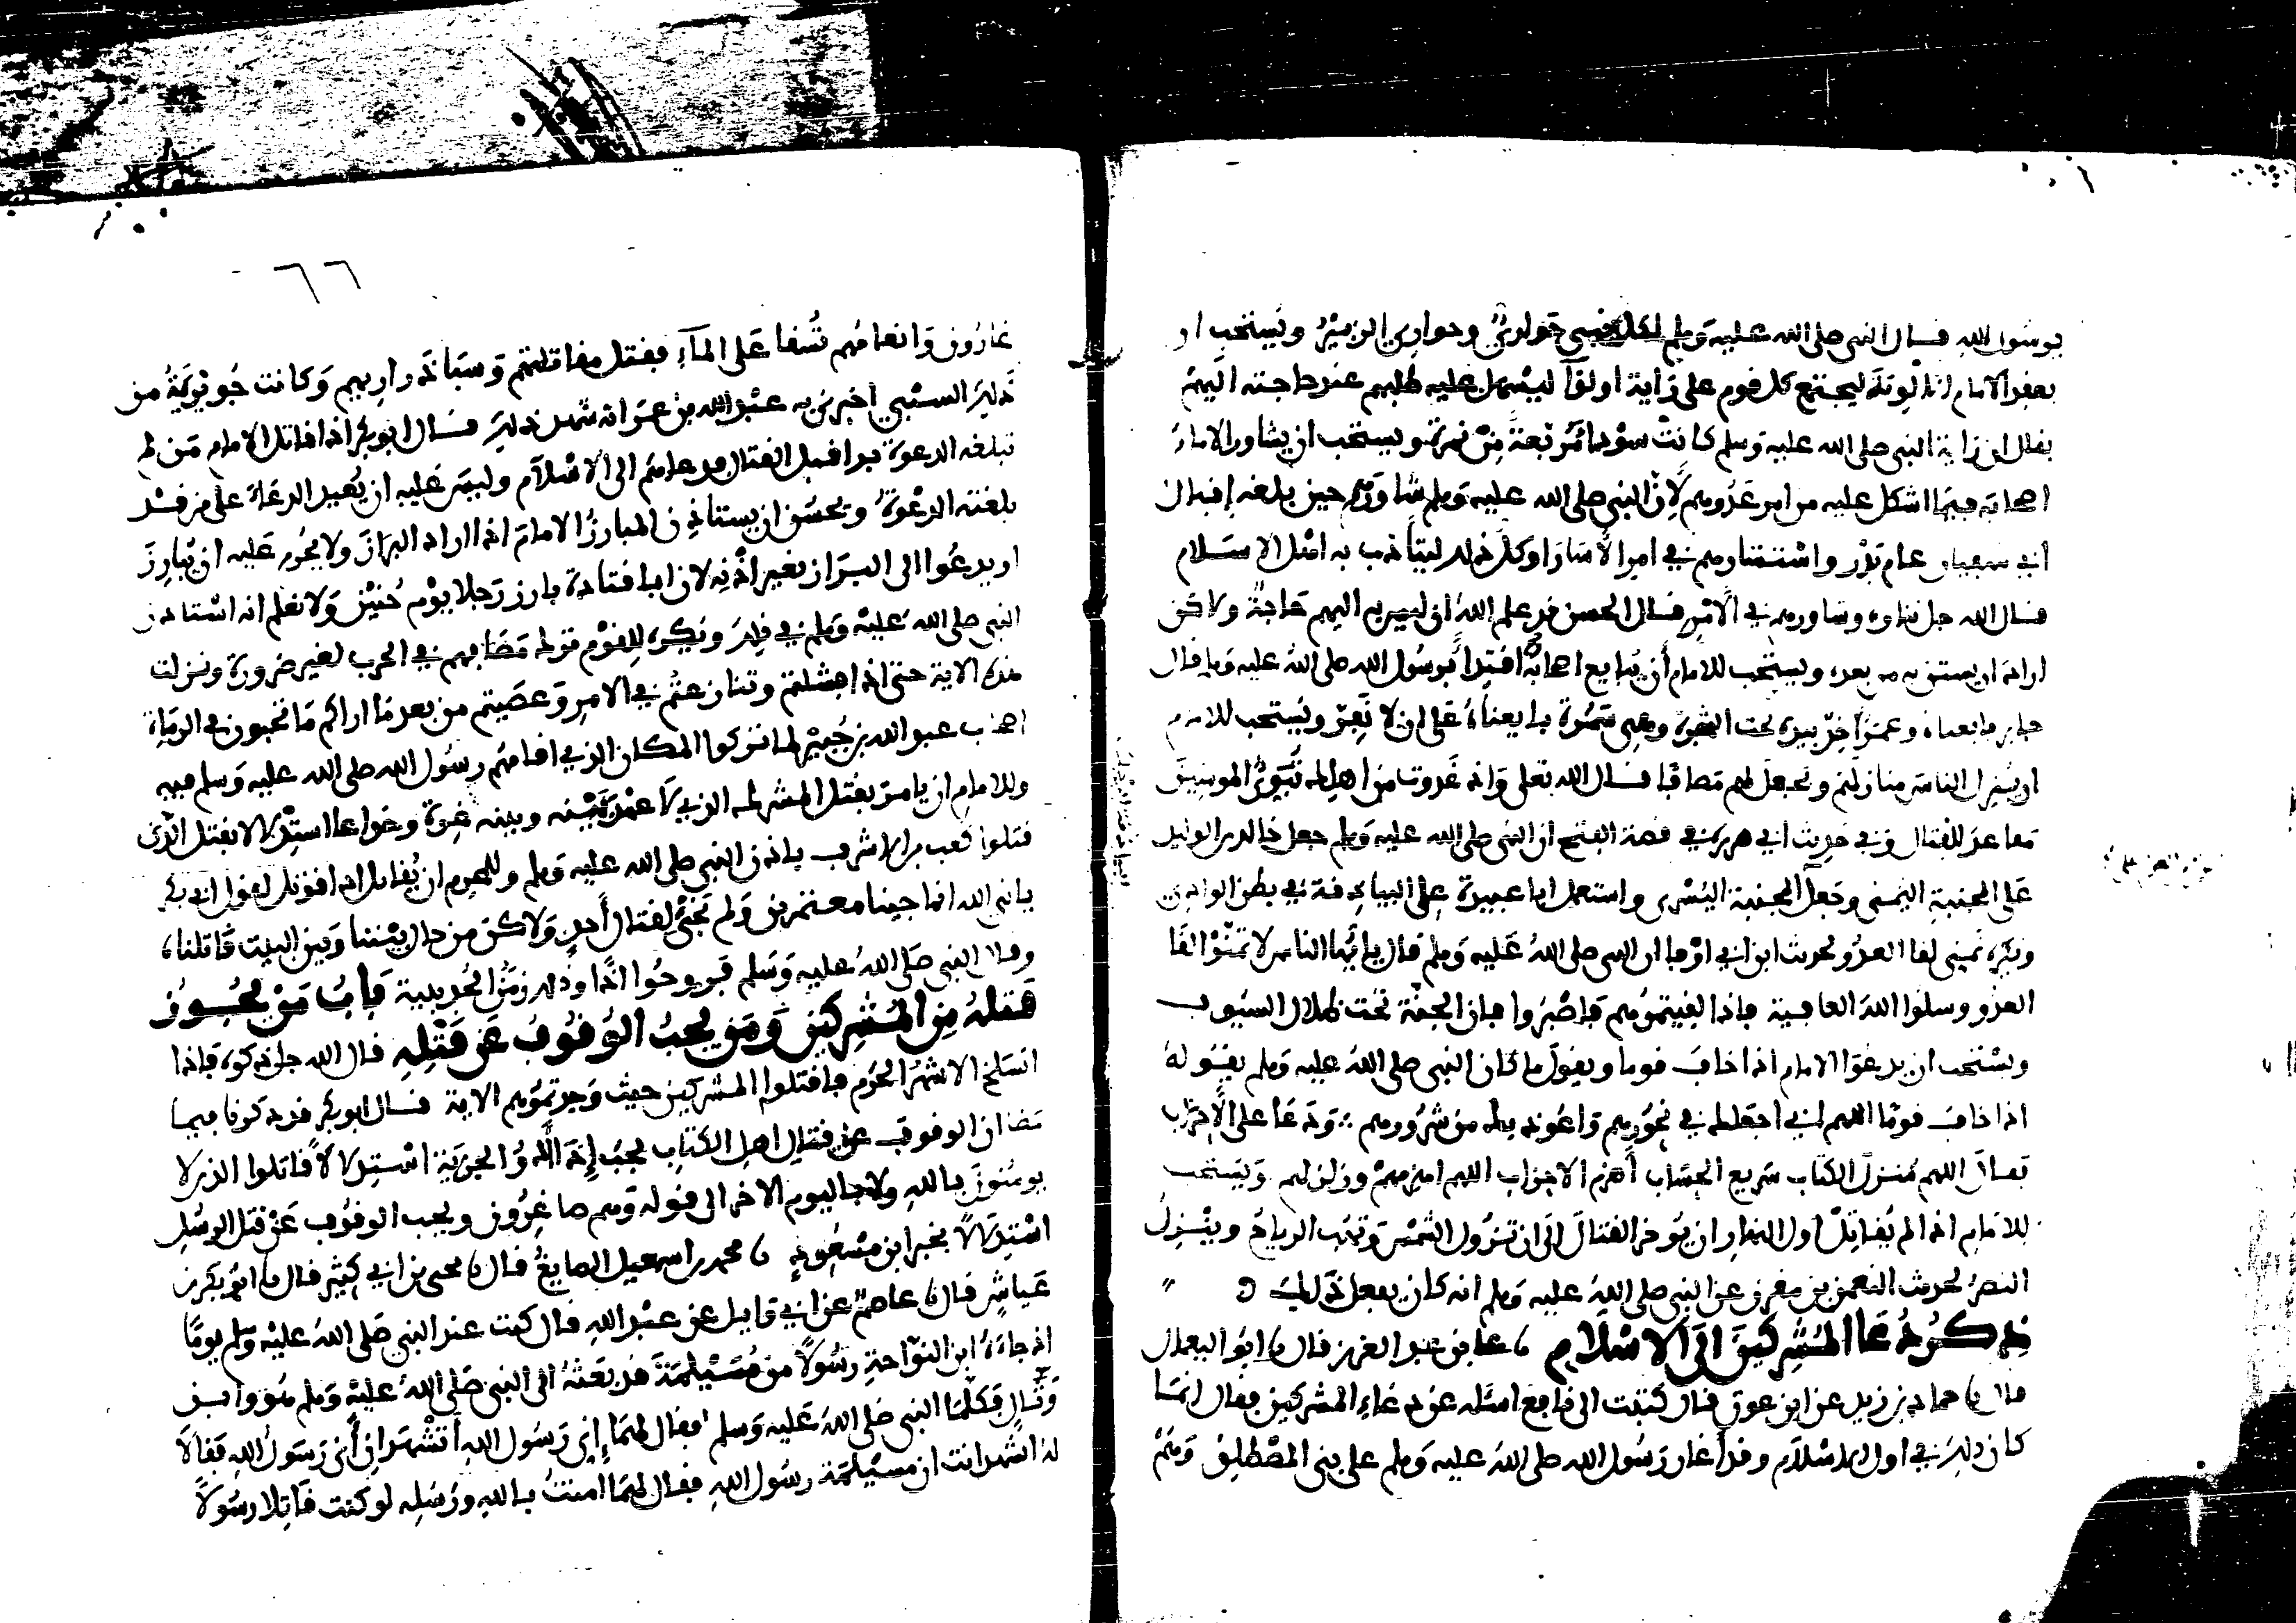 برسول الله قال النبي صلى الله عليه وسلم لكل نبي حواري وحواري الزبير ويستحب ان
يعقد الامام الالوية ليجتمع كل قوم على راية او لوآ ليسهل عليه طلبهم عند حاجته اليهم
يقال ان راية النبي صلى الله عليه وسلم كانت سودا مربعة من نمرة ويستحب ان يشاور الامام
اصحابه فيما اشكل عليه من امر عدوهم لان النبي صلى الله عليه وسلم شاورهم حين بلغه اقبال
ابي سفيان عام بدر واستشارهم في امر الاسارا وكل ذلك ليتأدب به اهل الاسلام
قال الله جل ثناوه وشاورهم في الامر قال الحسن قد علم الله ان ليس به اليهم حاجة ولاكن
اراد ان يستن به من بعده ويستحب للامام أن يبايع اصحابه اقتدا برسول الله صلى الله عليه وسلم قال
جابر بايعناه وعمر اخذ بيده تحت الشجرة وهي سمرة بايعناه على ان لا نفر ويستحب للامام
ان ينزل الناس منازلهم ويجعل لهم مصافا قال الله تعلى واذ غدوت من اهلك تبوئ المومنين
مقاعد للقتال وفي حديث ابي هريرة في قصة الفتح ان النبي صلى الله عليه وسلم جعل خالد بن الوليد
على المجنبة اليمنى وجعل المجنبة اليسرى واستعمل ابا عبيدة على البياذقة في بطن الوادي
ويكره تمني لقا العدو لحديث ابن ابي اوفا ان النبي صلى الله عليه وسلم قال يا ايها الناس لا تمنوا لقا
العدو وسلوا الله العافية فاذا لقيتموهم فاصبروا فان الجنة تحت ظلال السيوف
ويستحب ان يدعوا الامام اذا خاف قوما ويقول ما كان النبي صلى الله عليه وسلم يقوله
اذا خاف قوما اللهم اني اجعلك في نحورهم واعوذ بك من شرورهم ودعا على الاحزاب
فقال اللهم منزل الكتاب سريع الحساب أهزم الاحزاب اللهم اهزمهم وزلزلهم ويستحب
للامام اذا لم يقاتل اول النهار ان يوخر القتال الى ان تزول الشمس وتهب الرياح وينزل
النصر لحديث النعمن بن مقرن عن النبي صلى الله عليه وسلم انه كان يفعل ذلك
ذكر دعا المشركين الى الاسلام نا علي بن عبد العزيز قال نا ابو النعمان
قال نا حماد بن زيد عن ابن عون قال كتبت الى نافع اسئله عن دعاء المشركين فقال انما
كان ذلك في اول الاسلام وقد أغار رسول الله صلى الله عليه وسلم على بني المصطلق وهم
٦٦
غارون وانعامهم تسقا على المآء فقتل مقاتلتهم وسبا ذراريهم وكانت جويرية من
ذلك السبي اخبرني به عبد الله بن عمر انه شهد ذلك قال ابو بكر اذا قاتل الامام من لم
تبلغه الدعوة بدا قبل القتال بدعايهم الى الاسلام وليس عليه ان يعيد الدعاء على من قد
بلغته الدعوة ويحسن ان يستاذن المبارز الامام اذا اراد البراز ولا يحرم عليه ان يبارز
او يدعوا الى البراز بغير اذنه لان ابا قتادة بارز رجلا يوم حنين ولا نعلم انه استاذن
النبي صلى الله عليه وسلم في ذلك ويكره للقوم ترك مصافهم في الحرب لغير ضرورة ونزلت
هذه الاية حتى اذا فشلتم وتنازعتم في الامر وعصيتم من بعد ما اراكم ما تحبون في الرماة
اصحاب عبد الله بن جبير لما تركوا المكان الذي اقامهم رسول الله صلى الله عليه وسلم فيه
وللامام ان يامر بقتل المشرك الذي لا عهد بينه وبينه غرة وخداعا استدلالا بقتل الذين
قتلوا كعب بن الاشرف باذن النبي صلى الله عليه وسلم وللمحرم ان يقاتل اذا قوتل لقول ابي بكر
يا نبي الله انما جينا معتمرين ولم نجئ لقتال أحد ولاكن من حال بيننا وبين البيت قاتلناه
وقال النبي صلى الله عليه وسلم فروحوا اذا وذلك زمن الحديبية باب من يجوز
قتله من المشركين ومن يجب الوقوف عن قتله قال الله جل ذكره فاذا
انسلخ الاشهر الحرم فاقتلوا المشركين حيث وجدتموهم الاية قال ابو بكر قد ذكرنا فيما
مضا ان الوقوف عن قتال اهل الكتاب يجب إذا أدوا الجزية استدلالا قاتلوا الذين لا
يومنون بالله ولا باليوم الاخر الى قوله وهم صاغرون ويجب الوقوف عن قتل الرسل
استدلالا بخبر ابن مسعود نا محمد بن اسمعيل الصايغ قال نا يحيى بن ابي بكير قال نا ابو بكر بن
عياش قال نا عاصم عن ابي وايل عن عبد الله قال كنت عند النبي صلى الله عليه وسلم يوما
اذ جاءه ابن النواحة رسولا من مسيلمة قد بعثه الى النبي صلى الله عليه وسلم هو وابن
وثال فكلما النبي صلى الله عليه وسلم فقال لهما إني رسول الله أتشهدان أني رسول الله فقالا
له اتشهد انت ان مسيلمة رسول الله فقال لهما امنت بالله ورسله لو كنت قاتلا رسولا